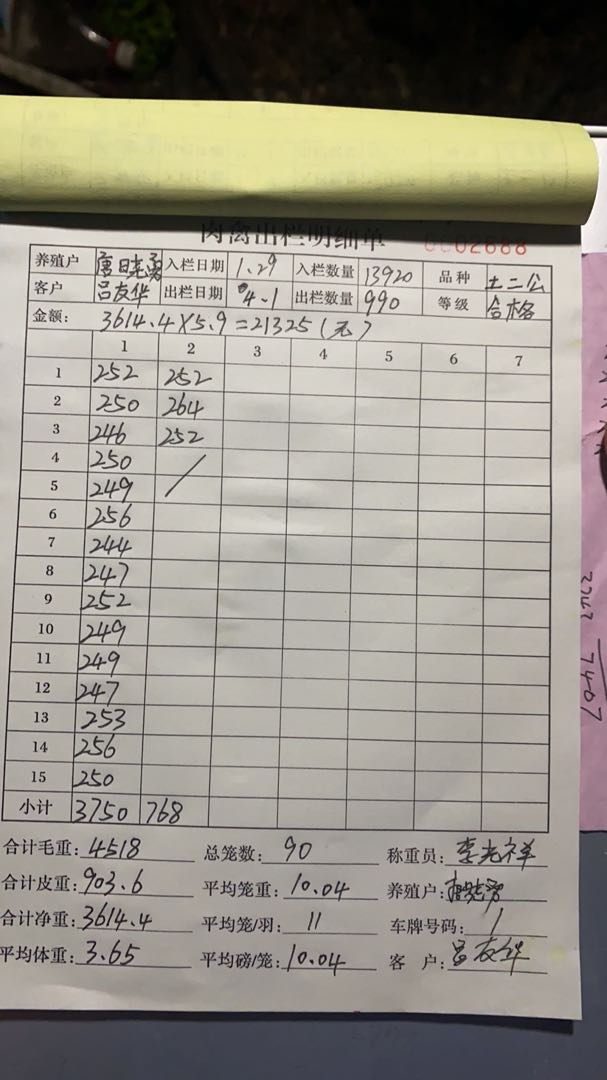 肉禽出栏明细单 0002688
养殖户 唐晓勇 入栏日期 1.29 入栏数量 13920 品种 土二公
客户 吕友华 出栏日期 4.1 出栏数量 990 等级 合格
金额: 3614.4×5.9=21325(元)
1 2 3 4 5 6 7
1 252 252
2 250 264
3 246 252
4 250
5 249
6 256
7 244
8 247
9 252
10 249
11 249
12 247
13 253
14 256
15 250
小计 3750 768
合计毛重: 4518 总笼数: 90 称重员: 李光祥
合计皮重: 903.6 平均笼重: 10.04 养殖户: 唐晓勇
合计净重: 3614.4 平均笼/羽: 11 车牌号码: 1
平均体重: 3.65 平均磅/笼: 10.04 客 户: 吕友华
7407